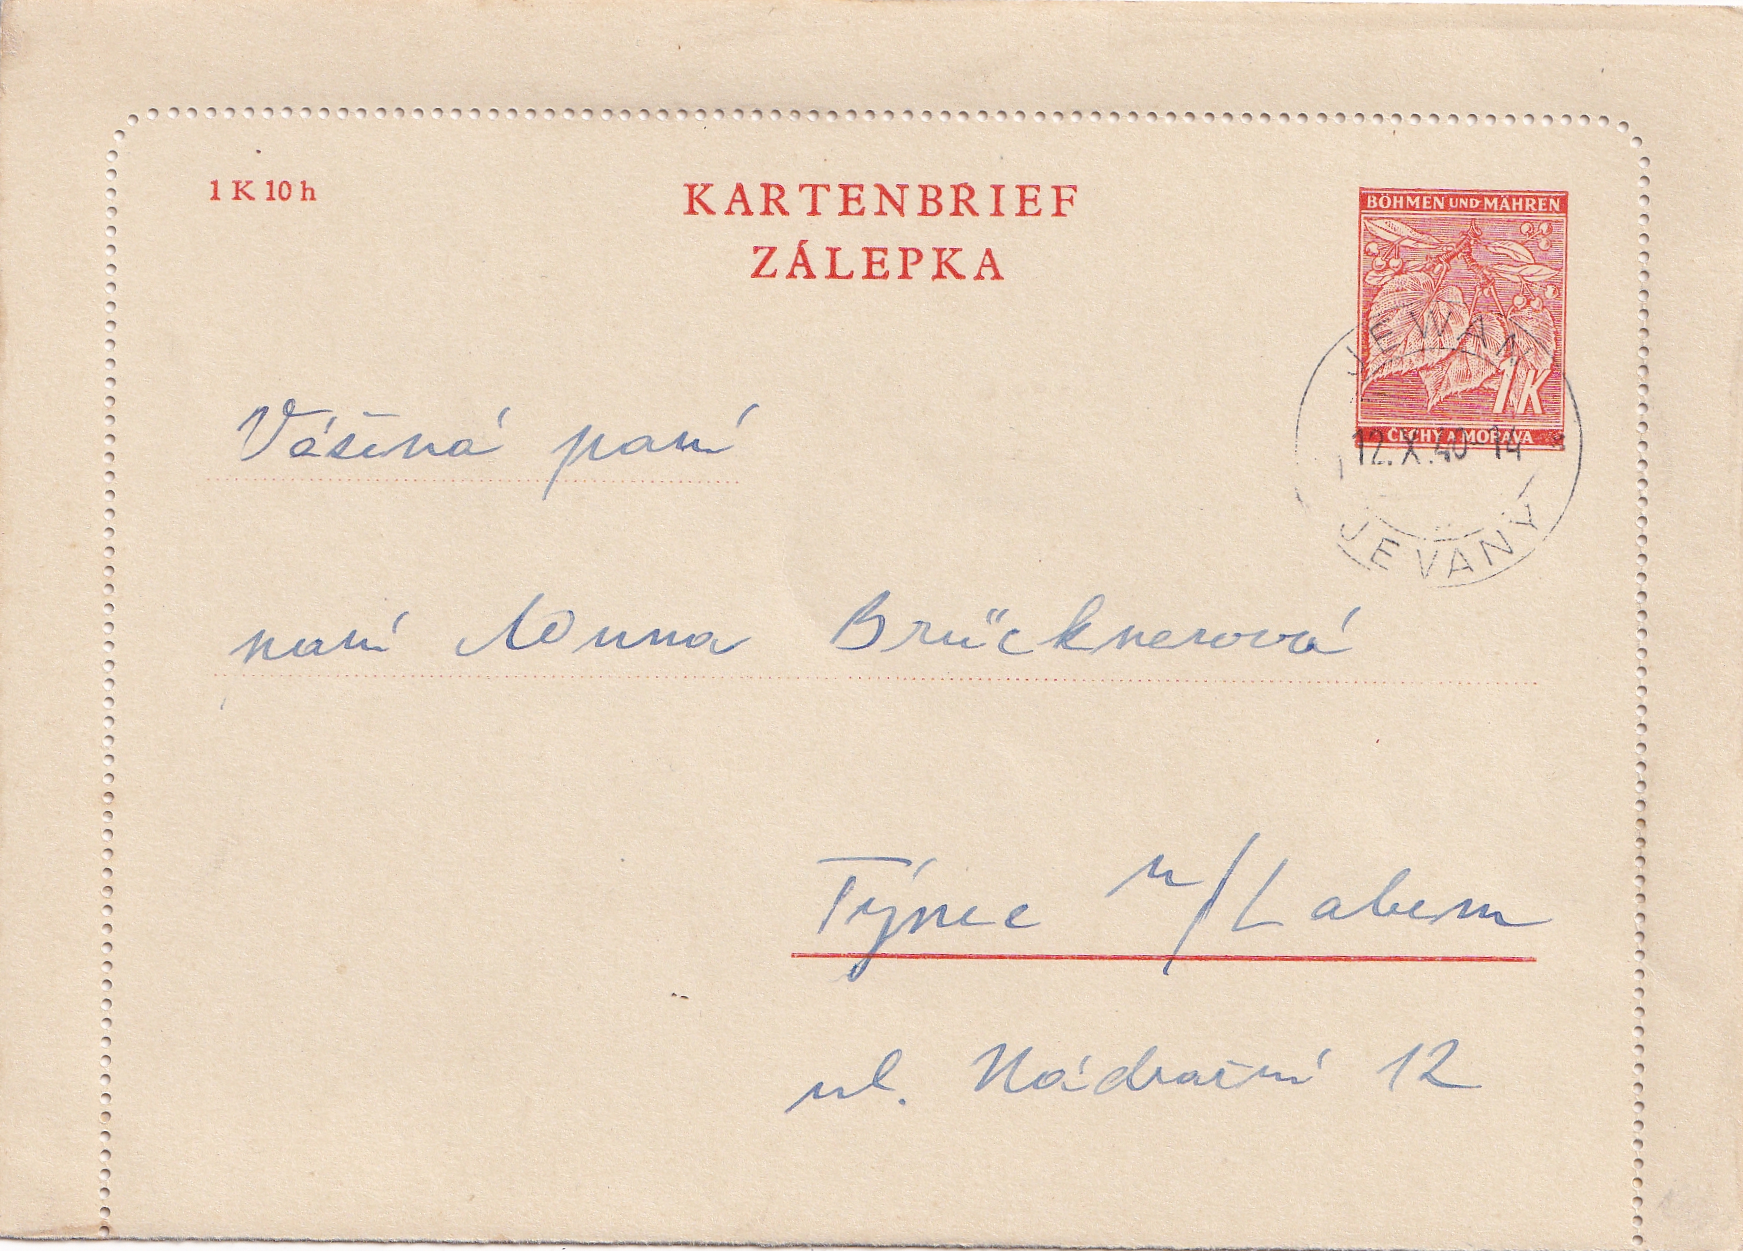 1 K 10 h
KARTENBRIEF
ZÁLEPKA
BÖHMEN UND MÄHREN
1K
ČECHY A MORAVA
JEWAN
12.X.40-14
JEVANY
Vážená paní
paní Anna Brücknerová
Týnec n/Labem
ul. Nádražní 12